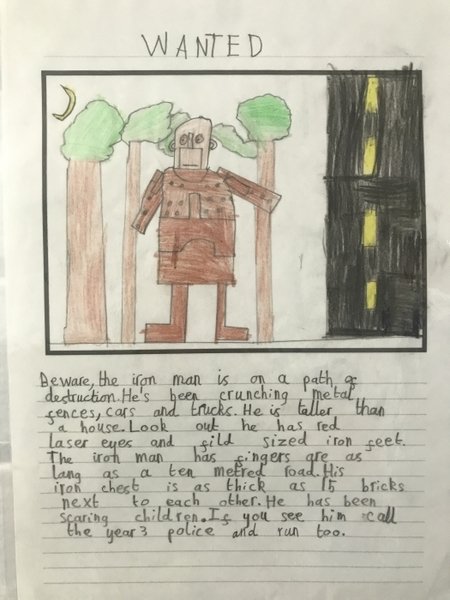 WANTED
Beware, the iron man is on a path of
destruction. He's been crunching metal
fences, cars and trucks. He is taller than
a house. Look out he has red
laser eyes and fild sized iron feet.
The iron man has fingers are as
lang as a ten metred road. His
iron chest is as thick as 15 bricks
next to each other. He has been
scaring children. If you see him call
the year 3 police and run too.